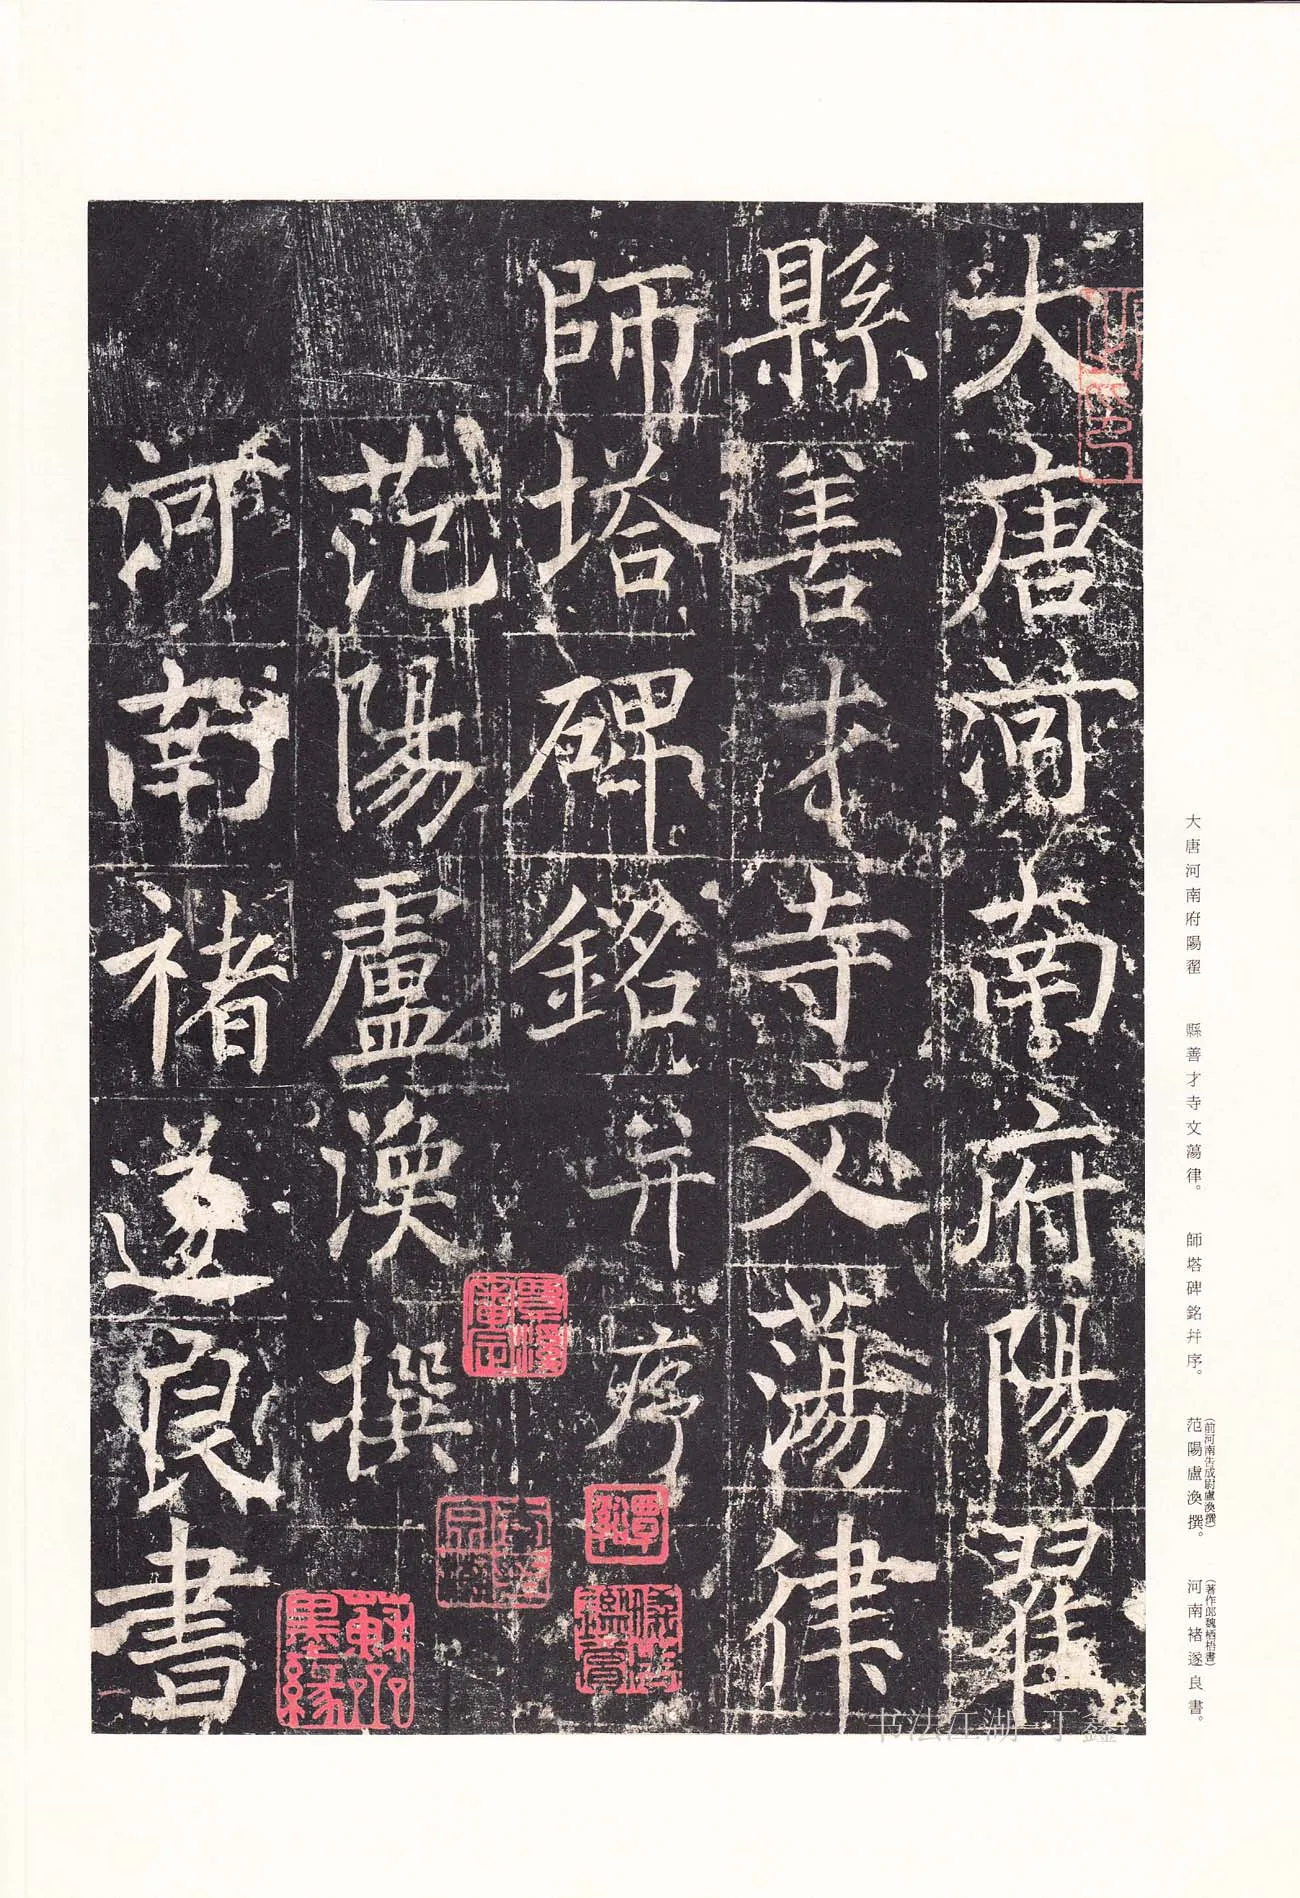 大唐河南府陽翟
縣善才寺文蕩律
師塔碑銘并序
范陽盧渙撰
河南褚遂良書
蘇齋墨緣
大唐河南府陽翟　縣善才寺文蕩律。　師塔碑銘幷序。　范陽盧渙撰。　河南褚遂良書。
（前河南告成尉盧渙撰）
（著作郎魏栖梧書）
书法江湖-丁鑫